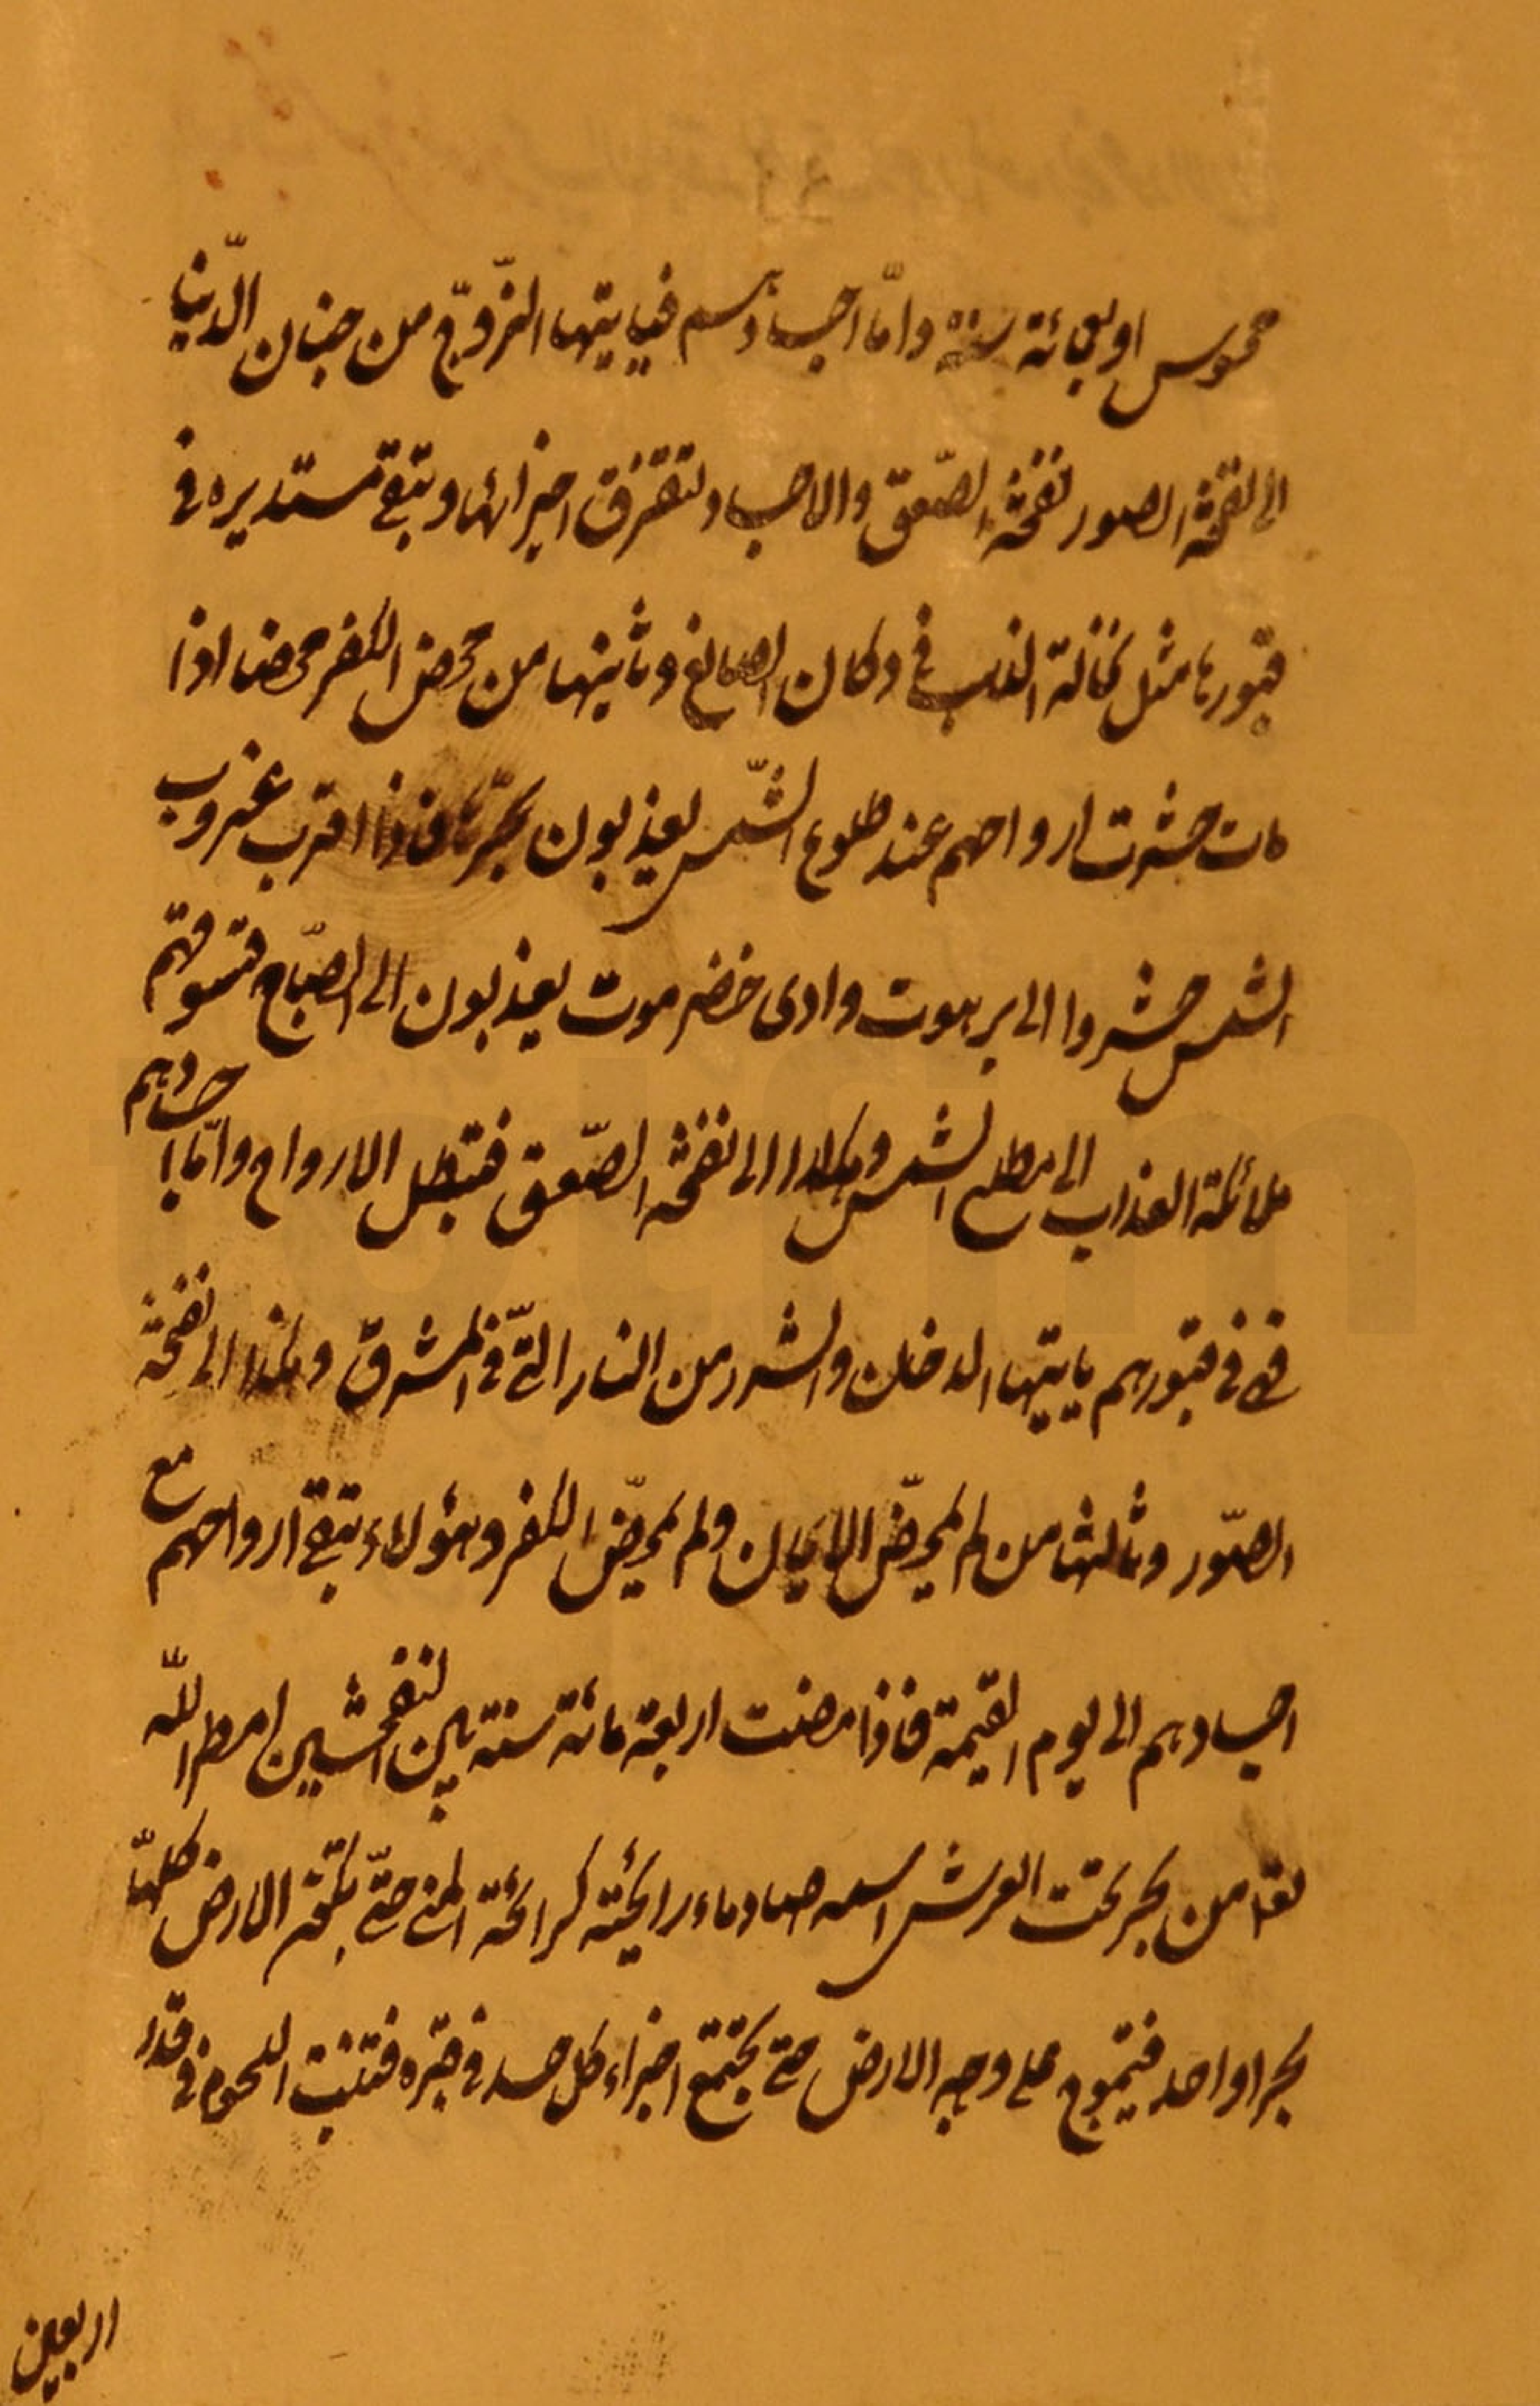 محسوس اربعمائة سنة واما اجسادهم فياتيها الرّوح من جنان الدّنيا
الى نفخة الصور نفخة الصّعق والاجساد تتفرق اجزائها وتبقى مستديره في
قبورها مثل نخالة الذهب في دكان الصائغ وثانيها من محض الكفر محضا اذا
مات حشرت ارواحهم عند طلوع الشّمس يعذبون بحرّها فاذا اقترب غروب
الشمس حشروا الى برهوت وادى خضرموت يعذبون الى الصّباح فتسوقهم
ملائكة العذاب الى مطلع الشمس وهكذا الى نفخة الصّعق فتبطل الارواح وامّا اجسادهم
فهي في قبورهم ياتيها الدخان والشرر من النار الّتي في المشرق وهكذا الى نفخة
الصّور وثالثها من لم يمحّض الايمان ولم يمحّض الكفر وهؤلاء تبقى ارواحهم مع
اجسادهم الى يوم القيمة فاذا مضت اربعة مائة سنة بين النفختين امطر اللّه
تعا من بحر تحت العرش اسمه صاد ماء رايحته كرائحة المني حتّى تكون الارض كلّها
بحرا واحد فيتموج على وجه الارض حتى تجتمع اجزاء كل جسد في قبره فتنبت اللحوم في قدر
اربعين